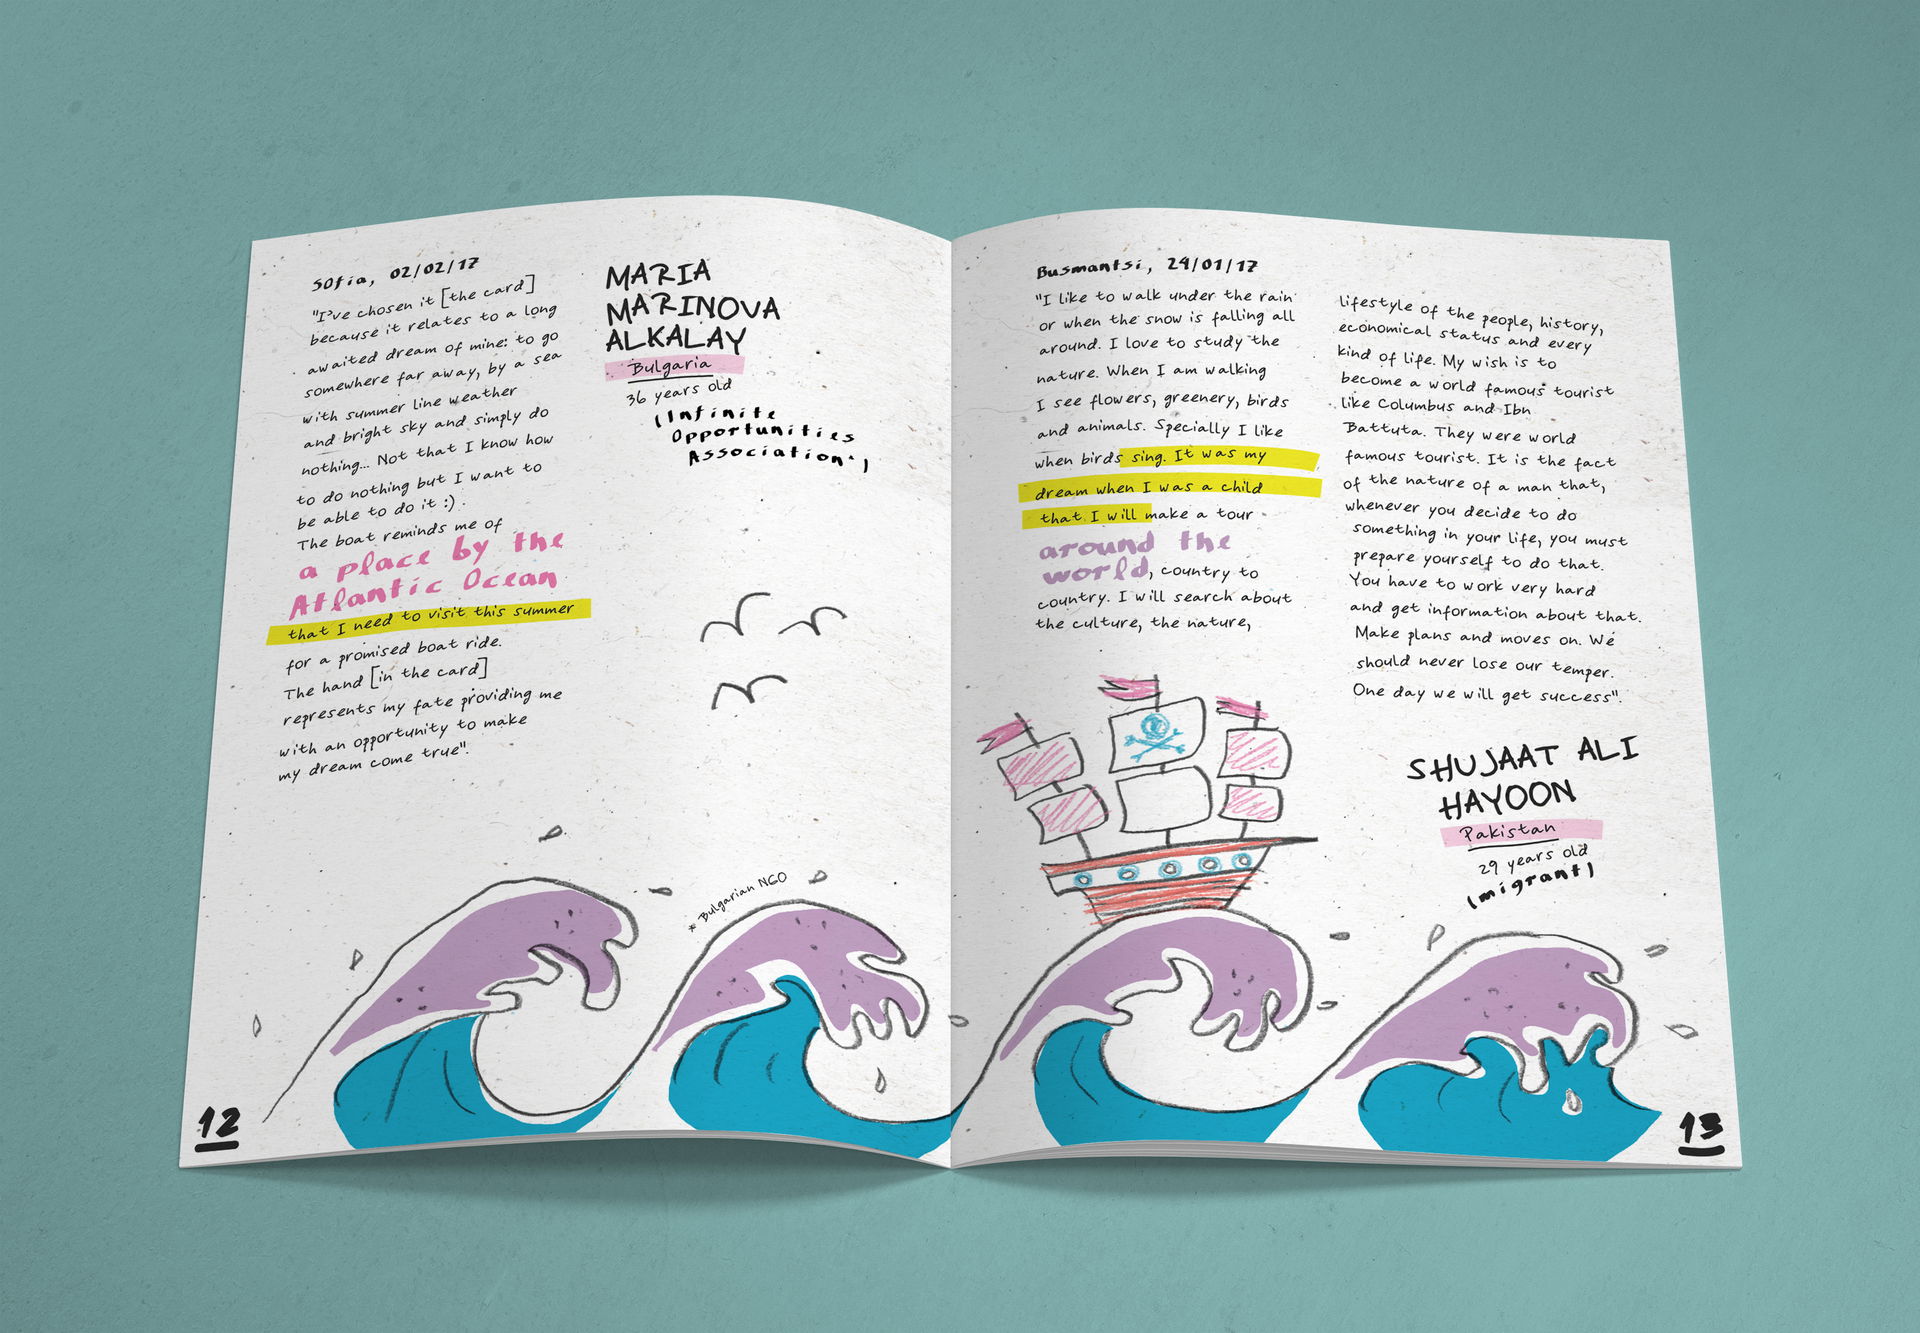 Sofia, 02/02/17
"I've chosen it [the card]
because it relates to a long
awaited dream of mine: to go
somewhere far away, by a sea
with summer line weather
and bright sky and simply do
nothing... Not that I know how
to do nothing but I want to
be able to do it :).
The boat reminds me of
a place by the
Atlantic Ocean
that I need to visit this summer
for a promised boat ride.
The hand [in the card]
represents my fate providing me
with an opportunity to make
my dream come true".
MARIA
MARINOVA
ALKALAY
Bulgaria
36 years old
(Infinite
Opportunities
Association*)
* Bulgarian NGO
12
Busmantsi, 24/01/17
"I like to walk under the rain
or when the snow is falling all
around. I love to study the
nature. When I am walking
I see flowers, greenery, birds
and animals. Specially I like
when birds sing. It was my
dream when I was a child
that I will make a tour
around the
world, country to
country. I will search about
the culture, the nature,
lifestyle of the people, history,
economical status and every
kind of life. My wish is to
become a world famous tourist
like Columbus and Ibn
Battuta. They were world
famous tourist. It is the fact
of the nature of a man that,
whenever you decide to do
something in your life, you must
prepare yourself to do that.
You have to work very hard
and get information about that.
Make plans and moves on. We
should never lose our temper.
One day we will get success".
SHUJAAT ALI
HAYOON
Pakistan
29 years old
(migrant)
13